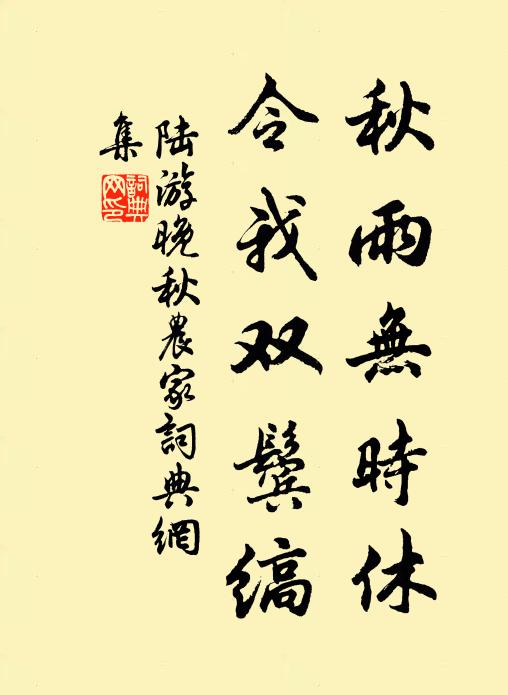 秋雨無時休
令我双鬓缟
陆游晚秋農家詞典網
集
詞典
网印